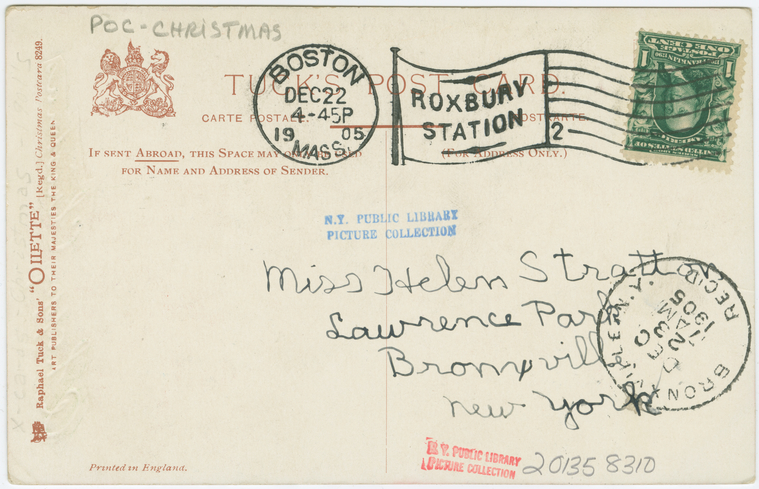 POC-CHRISTMAS
TUCK'S POST CARD.
CARTE POSTALE
POSTCARTE.
BOSTON
DEC 22
4-45P
1905
MASS.
ROXBURY
STATION
2
ONE CENT
1 1
IF SENT ABROAD, THIS SPACE MAY
(FOR ADDRESS ONLY.)
FOR NAME AND ADDRESS OF SENDER.
N.Y. PUBLIC LIBRARY
PICTURE COLLECTION
Miss Helen Stratton
Lawrence Park
Bronxville
New York
BRONXVILLE, N.Y.
DEC
23
7 AM
1905
REC'D
Raphael Tuck & Sons' "OILETTE" [Regd.] Christmas Postcard 8249.
ART PUBLISHERS TO THEIR MAJESTIES THE KING & QUEEN
Printed in England.
N.Y. PUBLIC LIBRARY
PICTURE COLLECTION
20135 8310